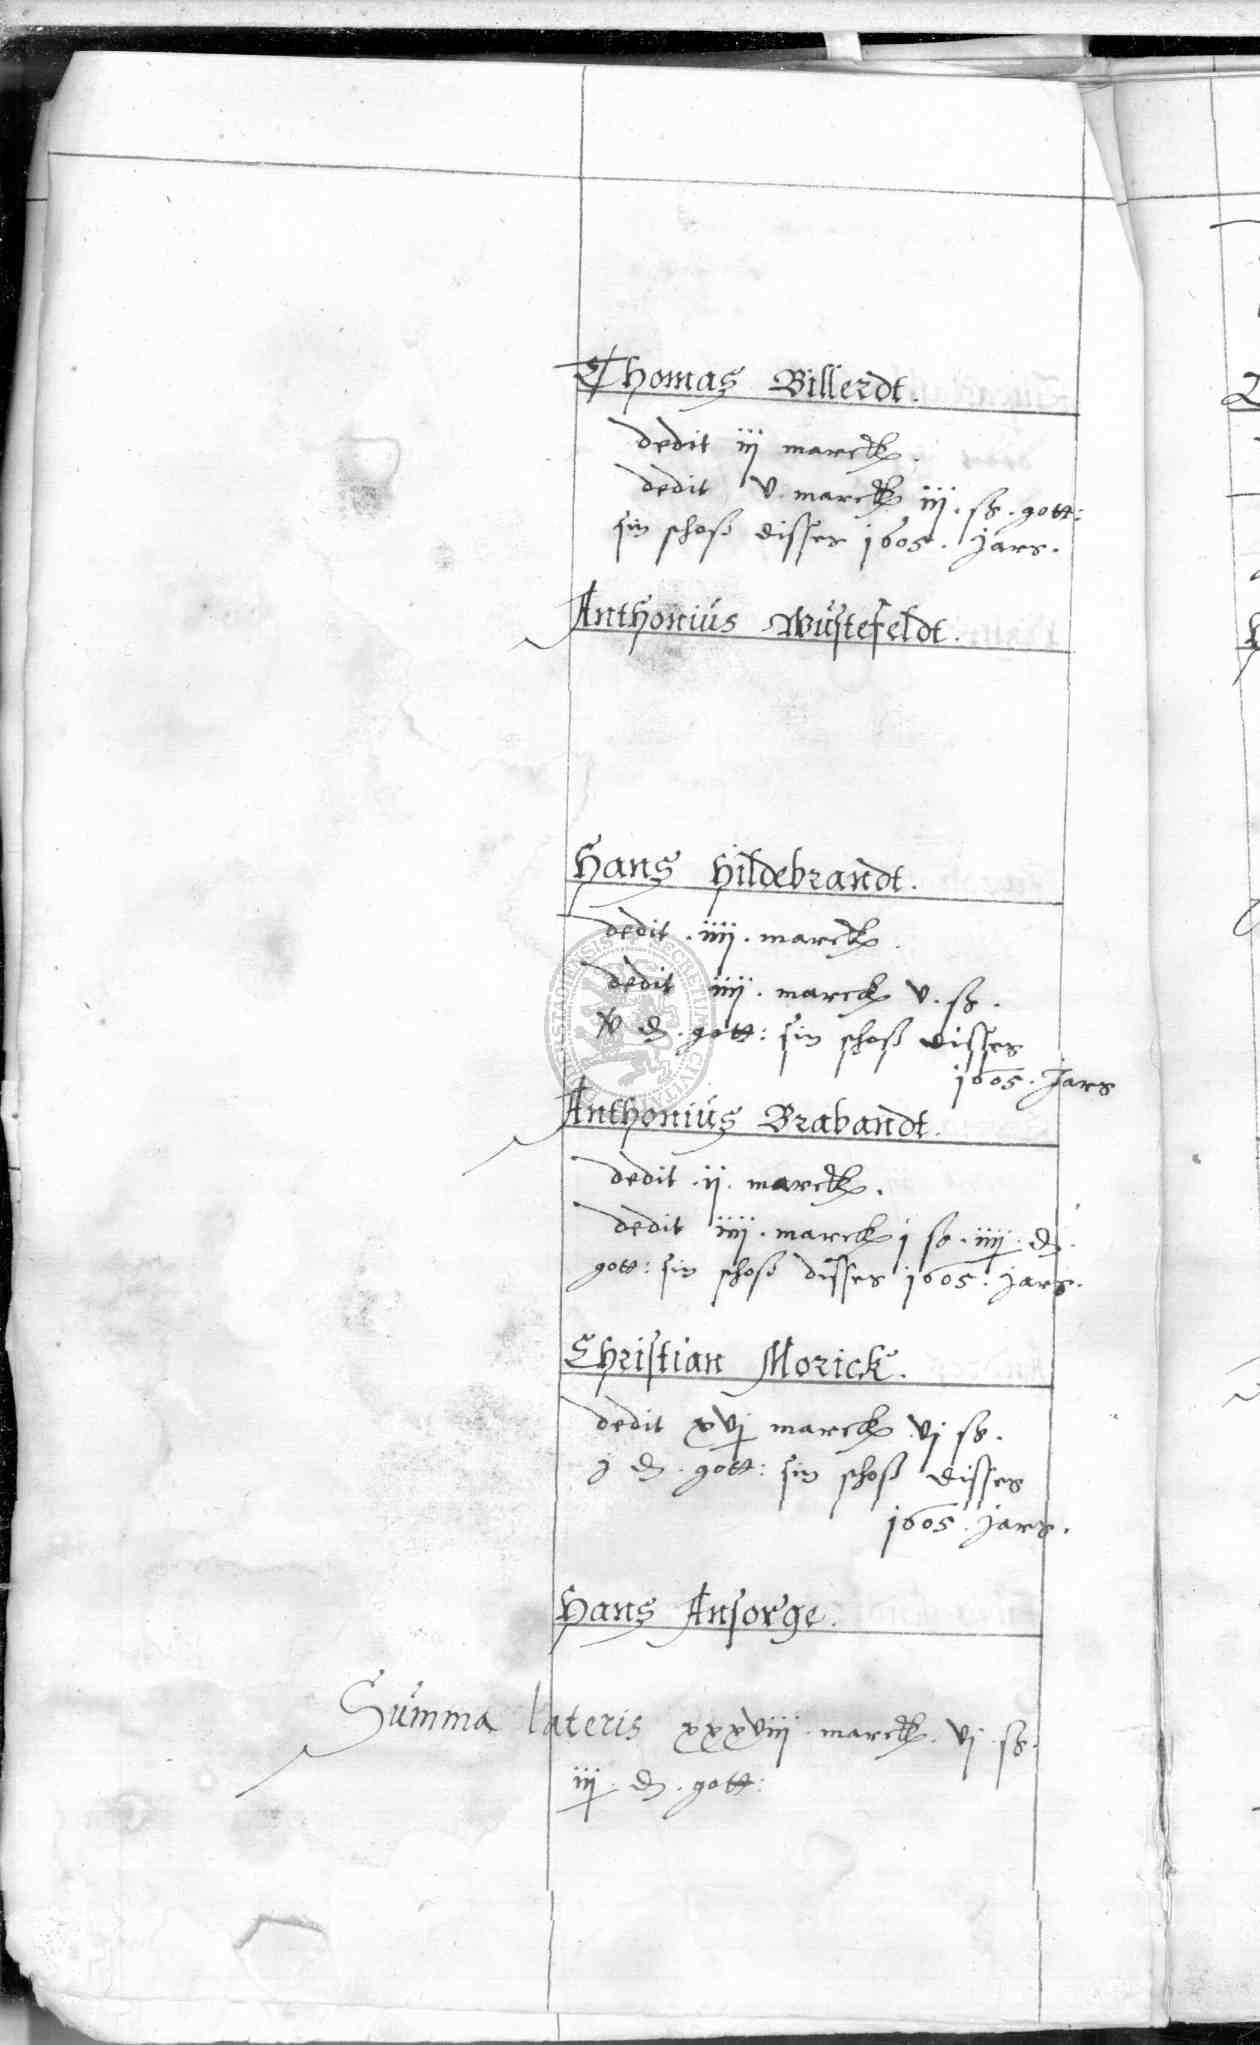 Thomas Billerdt.
dedit iij marck.
dedit v. marck iij. ß. gott:
sin schoß disses 1605. jars.
Anthonius Wüstefeldt.
Hans Hildebrandt.
dedit. iiij. marck.
dedit iiij. marck v. ß.
v d. gott: sin schoß disses
1605. Jars
Anthonius Brabandt.
dedit. ij. marck.
dedit iiij. marck j ß. iiij. d.
gott: sin schoß disses 1605. jars.
Christian Morick.
dedit xvj marck vj ß.
j d. gott: sin schoß disses
1605. jars.
Hans Ansorge.
Summa lateris xxxviij. marck. vj. ß.
iij. d. gott: